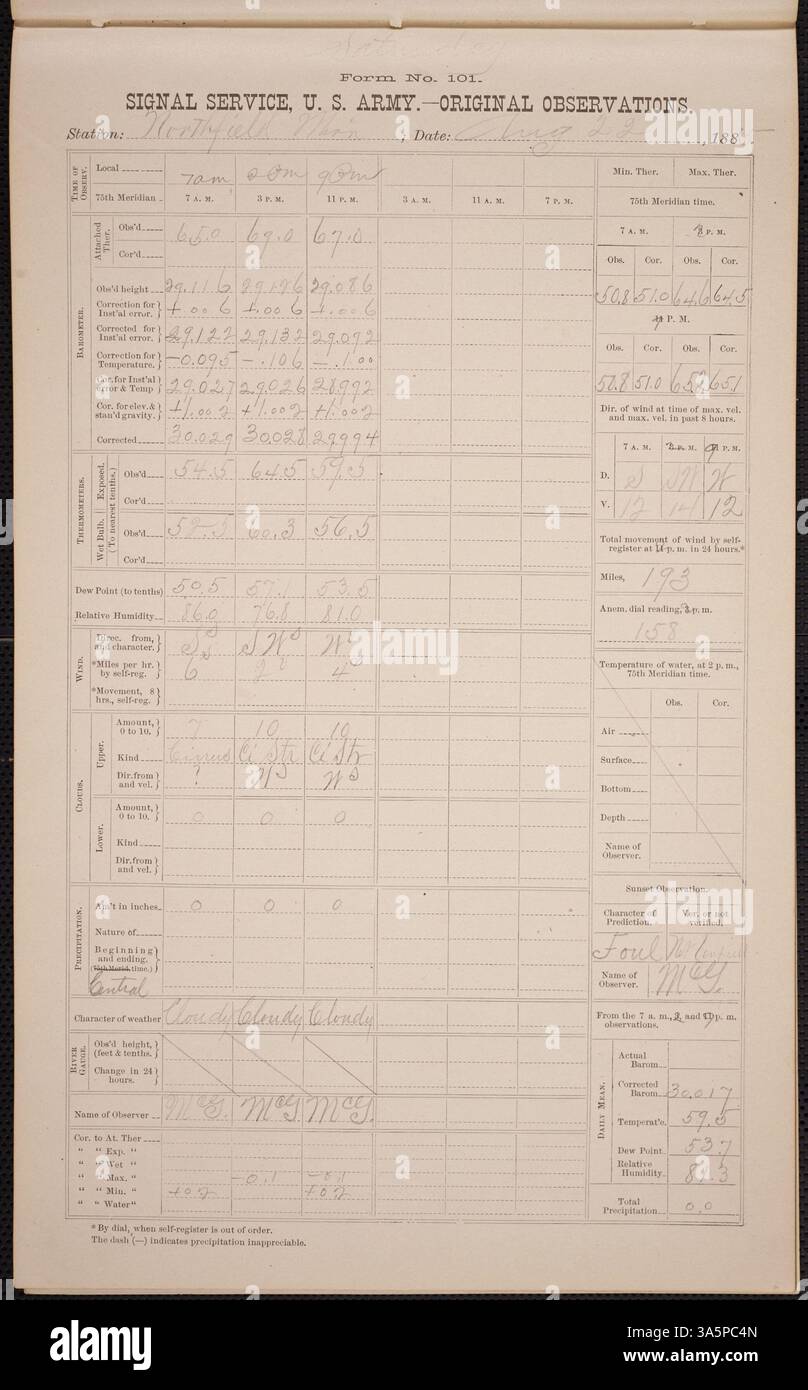 Form No. 101.
SIGNAL SERVICE, U. S. ARMY.—ORIGINAL OBSERVATIONS.
Station: Northfield Minn ; Date: Aug 22 , 188
TIME OF OBSERV.
Local 7am 2 Pm 9 Pm
75th Meridian 7 A. M. 3 P. M. 11 P. M. 3 A. M. 11 A. M. 7 P. M.
Attached Ther.
Obs'd 65.0 69.0 67.0
Cor'd
BAROMETER.
Obs'd height 29.116 29.126 29.086
Correction for Inst'al error. +.006 +.006 +.006
Corrected for Inst'al error. 29.122 29.132 29.092
Correction for Temperature. -0.095 -.106 -.100
Cor. for Inst'al error & Temp 29.027 29.026 28.992
Cor. for elev. & stan'd gravity. +1.002 +1.002 +1.002
Corrected 30.029 30.028 29.994
THERMOMETERS.
(To nearest tenths.)
Exposed.
Obs'd 54.5 64.5 59.5
Cor'd
Wet Bulb.
Obs'd 52.5 60.3 56.5
Cor'd
Dew Point (to tenths) 50.5 57.1 53.5
Relative Humidity 86.0 76.8 81.0
WIND.
Direc. from, and character. S SW W
*Miles per hr. by self-reg. 6 9 4
*Movement, 8 hrs., self-reg.
CLOUDS.
Upper.
Amount, 0 to 10. 7 10 10
Kind Cirrus Ci Str Ci Str
Dir. from and vel. ? W W
Lower.
Amount, 0 to 10. 0 0 0
Kind
Dir. from and vel.
PRECIPITATION.
Am't in inches 0 0 0
Nature of
Beginning and ending. (75th Merid. time.)
Central
Character of weather Cloudy Cloudy Cloudy
RIVER GAUGE.
Obs'd height, (feet & tenths.
Change in 24 hours.
Name of Observer McG. McG. McG.
Cor. to At. Ther
" " Exp. "
" " Wet "
" " Max. " -0.1 -0.1
" " Min. " +0.2 +0.2
" " Water"
*By dial, when self-register is out of order.
The dash (—) indicates precipitation inappreciable.
Min. Ther. Max. Ther.
75th Meridian time.
7 A. M. P. M.
Obs. Cor. Obs. Cor.
50.8 51.0 64.6 64.5
P. M.
Obs. Cor. Obs. Cor.
50.8 51.0 65.2 65.1
Dir. of wind at time of max. vel. and max. vel. in past 8 hours.
7 A. M. 3 P. M. 9 P. M.
D. S SW W
V. 12 14 12
Total movement of wind by self-register at 11 p. m. in 24 hours.*
Miles, 193
Anem. dial reading, p. m.
158
Temperature of water, at 2 p. m., 75th Meridian time.
Obs. Cor.
Air
Surface
Bottom
Depth
Name of Observer.
Sunset Observation.
Character of Prediction. Ver. or not verified.
Foul
Name of Observer. McG.
From the 7 a. m., 2, and 9 p. m. observations.
DAILY MEAN.
Actual Barom.
Corrected Barom. 30.017
Temperat'e. 59.5
Dew Point 53.7
Relative Humidity. 81.3
Total Precipitation 0.0
alamy
Image ID: 3A5PC4N
www.alamy.com